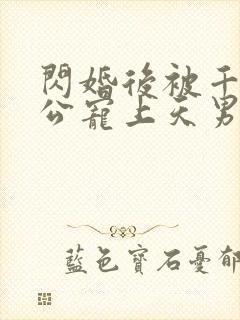 閃婚後被千
公寵上天男
藍色寶石憂郁